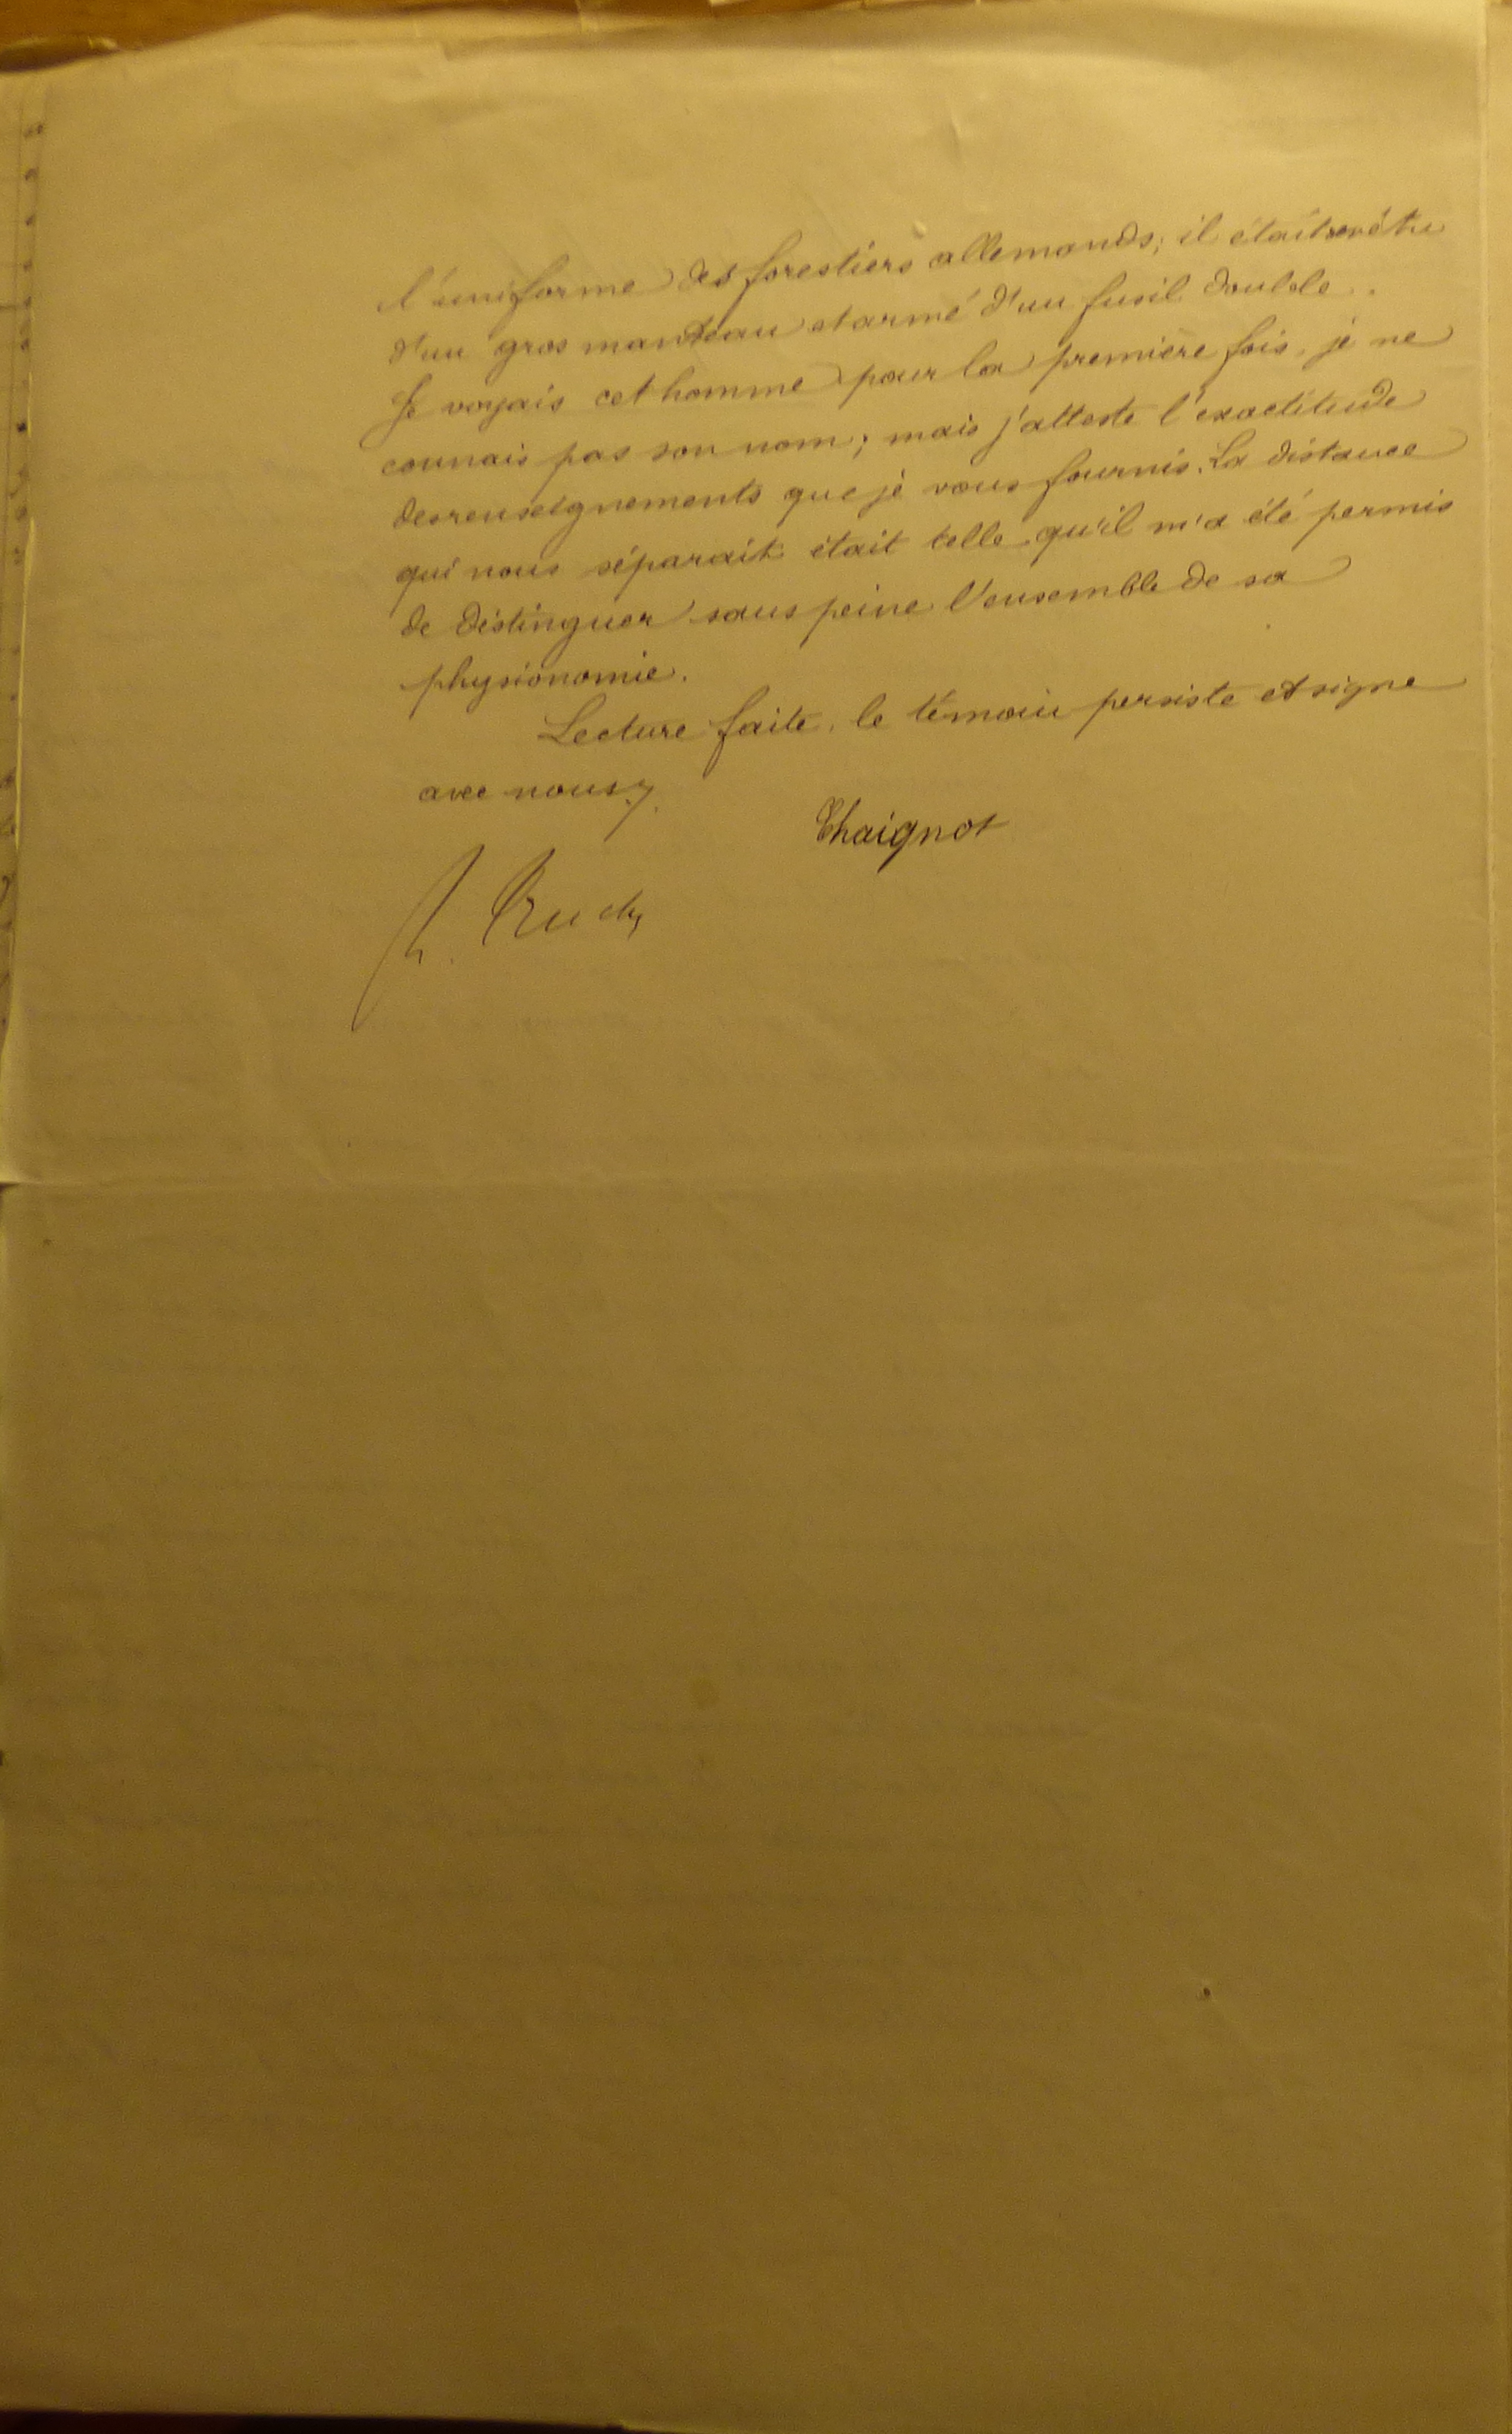 l'uniforme des forestiers allemands; il était revêtu
d'un gros manteau et armé d'un fusil double.
Je voyais cet homme pour la première fois, je ne
connais pas son nom; mais j'atteste l'exactitude
des renseignements que je vous fournis. La distance
qui nous séparait était telle qu'il m'a été permis
de distinguer sans peine l'ensemble de sa
physionomie.
Lecture faite, le témoin persiste et signe
avec nous.
Chaignot